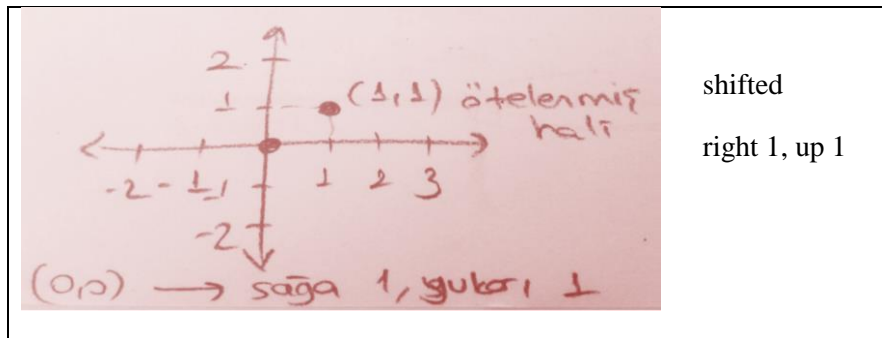 2
1
(1,1) ötelenmiş
hali
-2 -1 1 2 3
-1
-2
(0,0) → sağa 1, yukarı 1
shifted
right 1, up 1